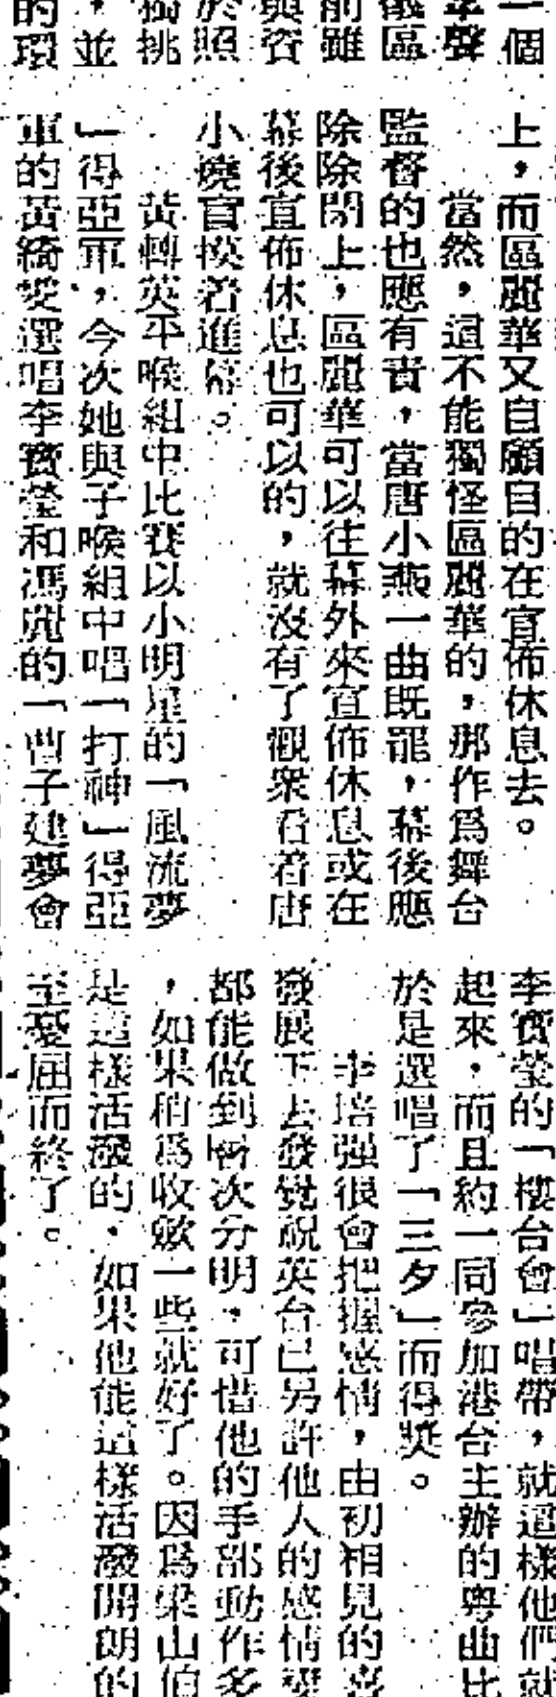 一個
華聲
儀區
前雖
與資
於照
獨挑
，並
的環
上，而區麗華又自顧自的在宣佈休息去。
當然，這不能獨怪區麗華的，那作爲舞台
監督的也應有責，當唐小燕一曲既罷，幕後應
除除閉上，區麗華可以往幕外來宣佈休息或在
幕後宣佈休息也可以的，就沒有了觀衆看着唐
小燕盲摸着進幕。
黃轉英平喉組中比賽以小明星的「風流夢
」得亞軍，今次她與子喉組中唱「打神」得亞
軍的黃綺雯選唱李寶瑩和馮剛的「曹子建夢會
李寶瑩的「樓台會」唱帶，就這樣他們就
起來，而且約一同參加港台主辦的粤曲比
於是選唱了「三夕」而得獎。
李培強很會把握感情，由初相見的喜
發展下去發覺祝英台已另許他人的感情變
都能做到層次分明，可惜他的手部動作多
，如果稍爲收歛一些就好了。因爲梁山伯
是這樣活潑的，如果他能這樣活潑開朗的
至憂屈而終了。